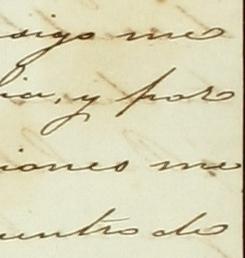 sigo me
ia, y por
iones me
uentro de